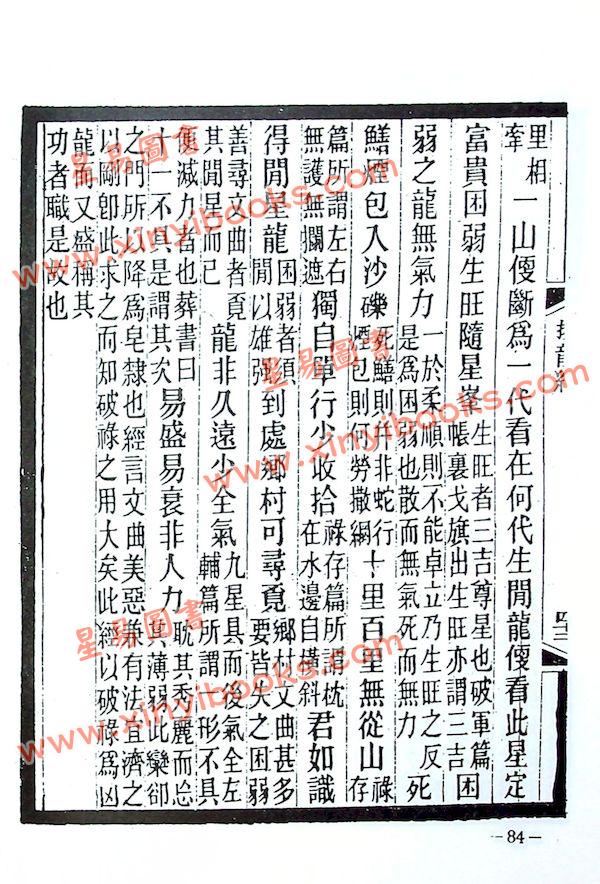 撼龍經
四二
里相
牽
一山便斷爲一代看在何代生閒龍便看此星定
富貴困弱生旺隨星峯
生旺者三吉尊星也破軍篇
帳裏戈旗出生旺亦謂三吉
困
弱之龍無氣力
一於柔順則不能卓立乃生旺之反
是爲困弱也散而無氣死而無力
死
鱔煙包入沙礫
死鱔則并非蛇行
煙包則何勞撒網
十里百里無從山
祿
存
篇所謂左右
無護無攔遮
獨自單行少收拾
祿存篇所謂枕
在水邊自橫斜
君如識
得閒星龍
困弱者須
閒以雄強
到處鄉村可尋覓
鄉村文曲甚多
要皆失之困弱
善尋文曲者覓
其閒星而已
龍非久遠少全氣
九星具而後氣全左
輔篇所謂一形不具
便減力者也葬書曰
十一不具是謂其次
易盛易衰非人力
眈其秀麗而忘
其薄弱此欒卻
之門所以降爲皂隸也經言文曲美惡兼有法宜濟之
以剛卽此求之而知破祿之用大矣此經以破祿爲凶
龍而又盛稱其
功者職是故也
-84-
星易圖書
www.xinyibooks.com
星易圖書
www.xinyibooks.com
星易圖書
www.xinyibooks.com